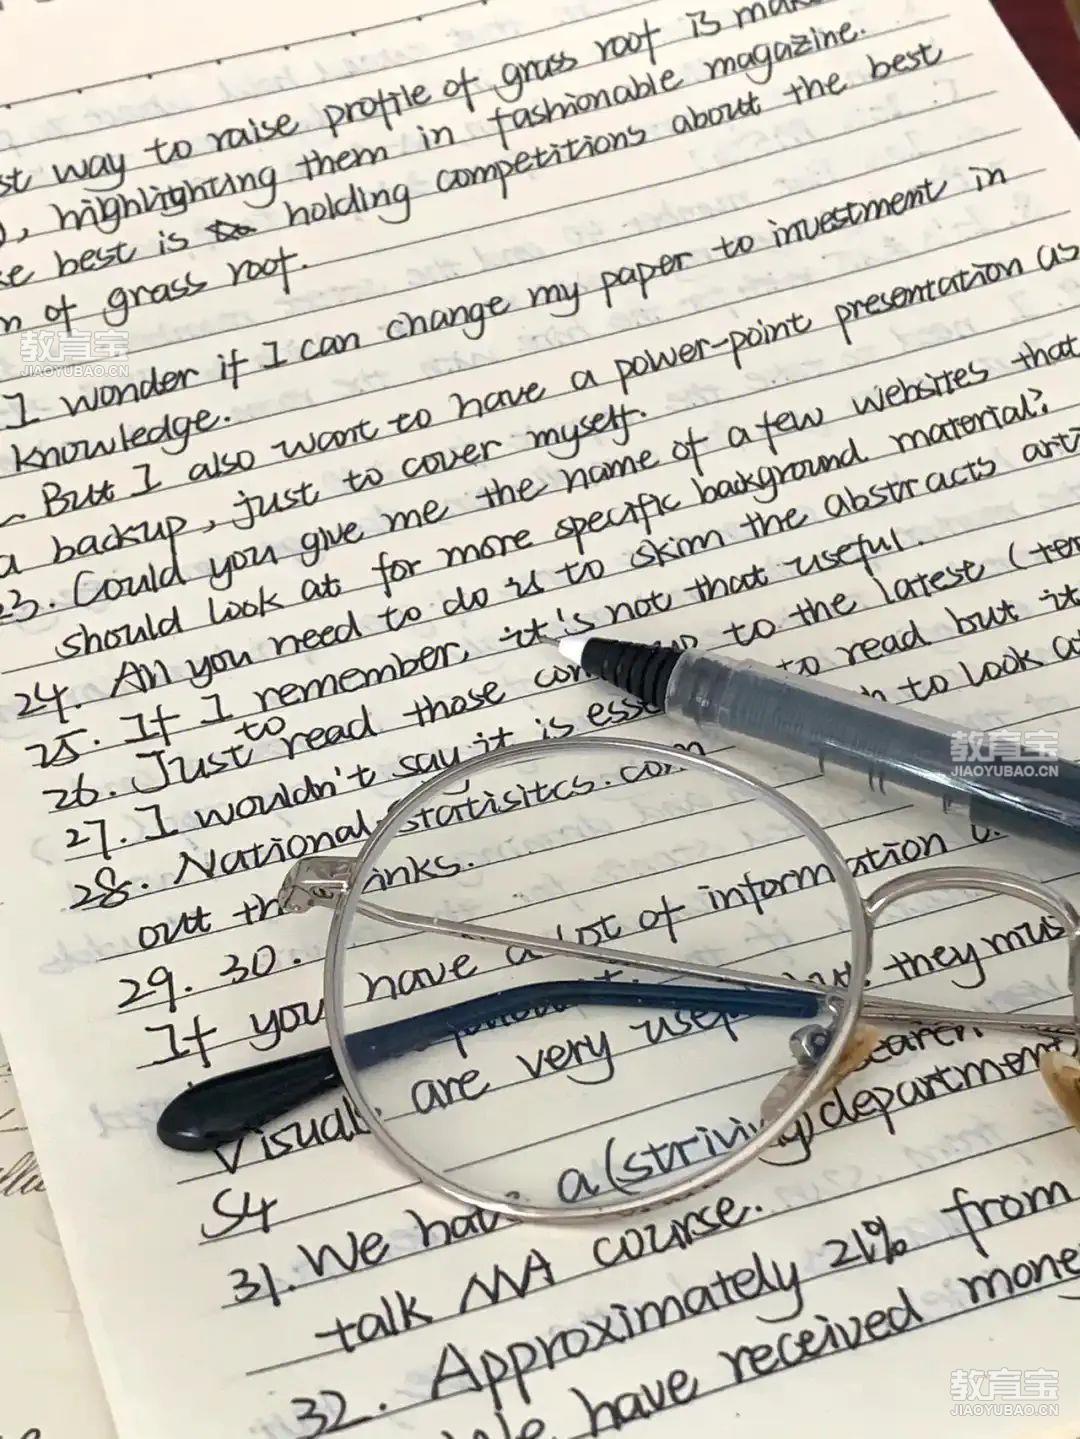 way to raise profile of grass root is
highlighting them in fashionable magazine.
best is holding competitions about the best
of grass root.
I wonder if I can change my paper to investment in
knowledge.
But I also want to have a power-point presentation as
a backup, just to cover myself.
23. Could you give me the name of a few websites that
should look at for more specific background material?
24. All you need to do is to skim the abstracts
25. If I remember, it's not that useful.
26. Just to read those to the latest
27. I wouldn't say it is to read but it
28. National.statisitcs.com to look
out
29. 30.
If you have a lot of information
they
visual are very
S4
31. We a (striving) department
talk MA course.
32. Approximately 21% from
have received
教育宝
JIAOYUBAO.CN
教育宝
JIAOYUBAO.CN
教育宝
JIAOYUBAO.CN